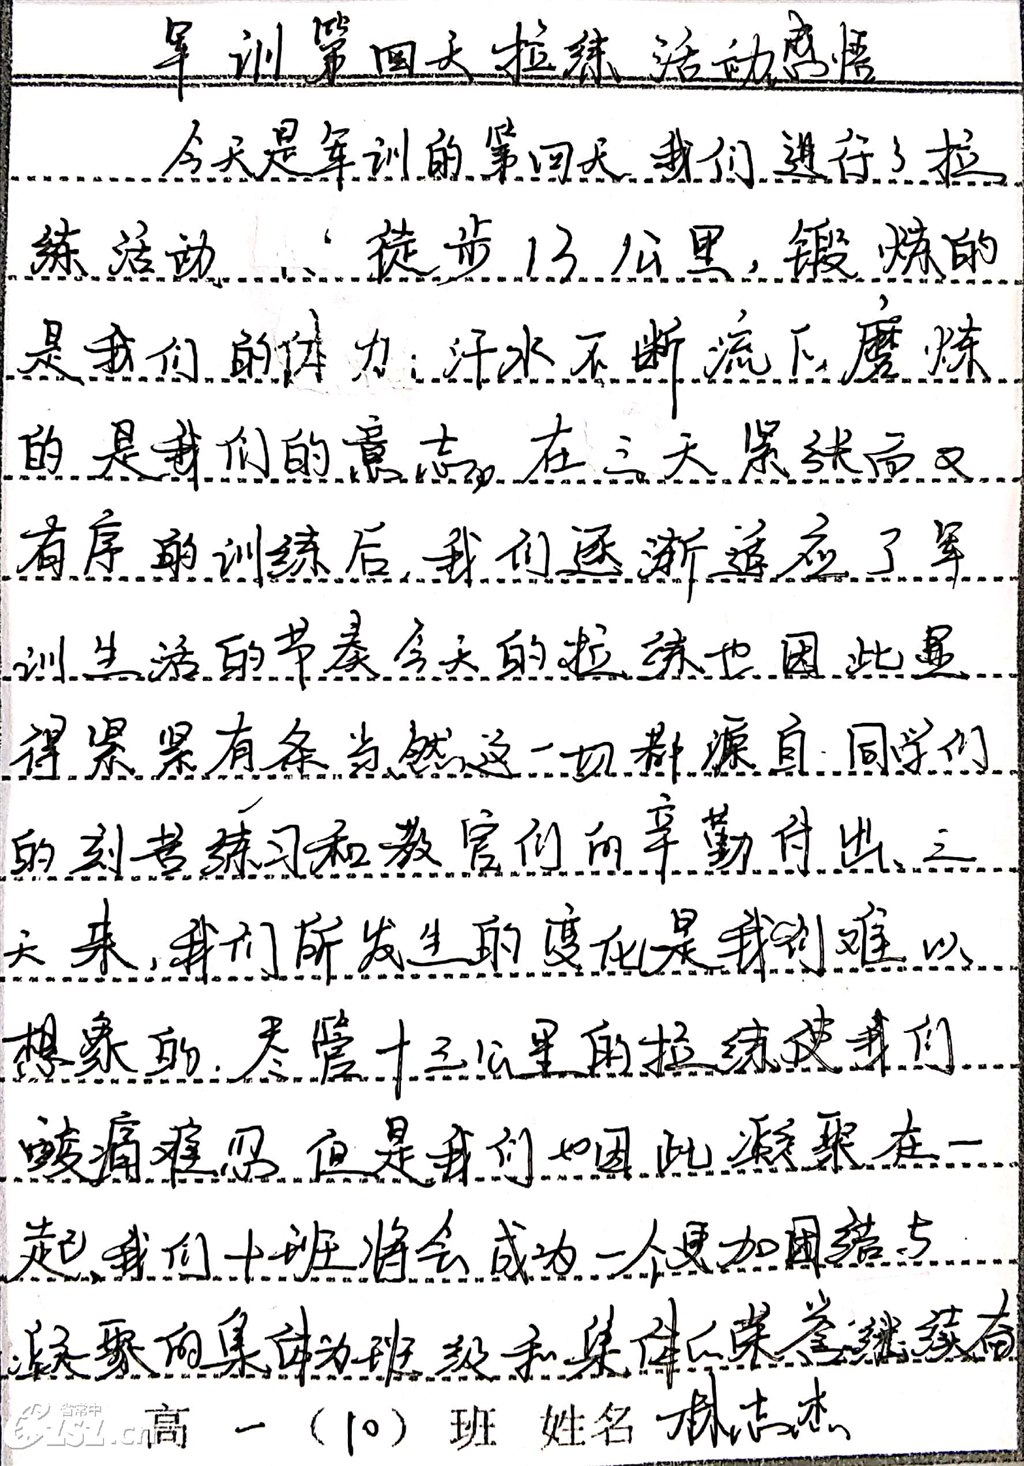 军训第四天拉练活动感悟
今天是军训的第四天,我们进行了拉
练活动 徒步13公里,锻炼的
是我们的体力;汗水不断流下,磨炼
的是我们的意志。在三天紧张而又
有序的训练后,我们逐渐适应了军
训生活的节奏,今天的拉练也因此显
得紧紧有条,当然这一切都源自同学们
的刻苦练习和教官们的辛勤付出、三
天来,我们所发生的变化是我们难以
想象的.尽管十三公里的拉练使我们
酸痛难忍 但是我们也因此凝聚在一
起,我们十班将会成为一个更加团结与
凝聚的集体,为班级和集体的荣誉继续奋
高一(10)班 姓名 志杰
省常中